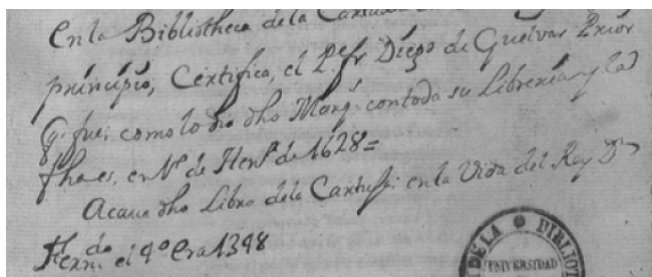 En la Bibliotheca de la Cartuxa
principio, Certifica, el P.e fr Diego de Guelvar Prior
q. fue; como lo dio dho Marq.s con toda su Libreria; y la
fha es, en Nov.e de 1628=
Acaua dho Libro de la Cartuja; en la Vida del Rey Dn
Fern.do el 4º Era 1348
DE LA BIBLIO
UNIVERSIDAD